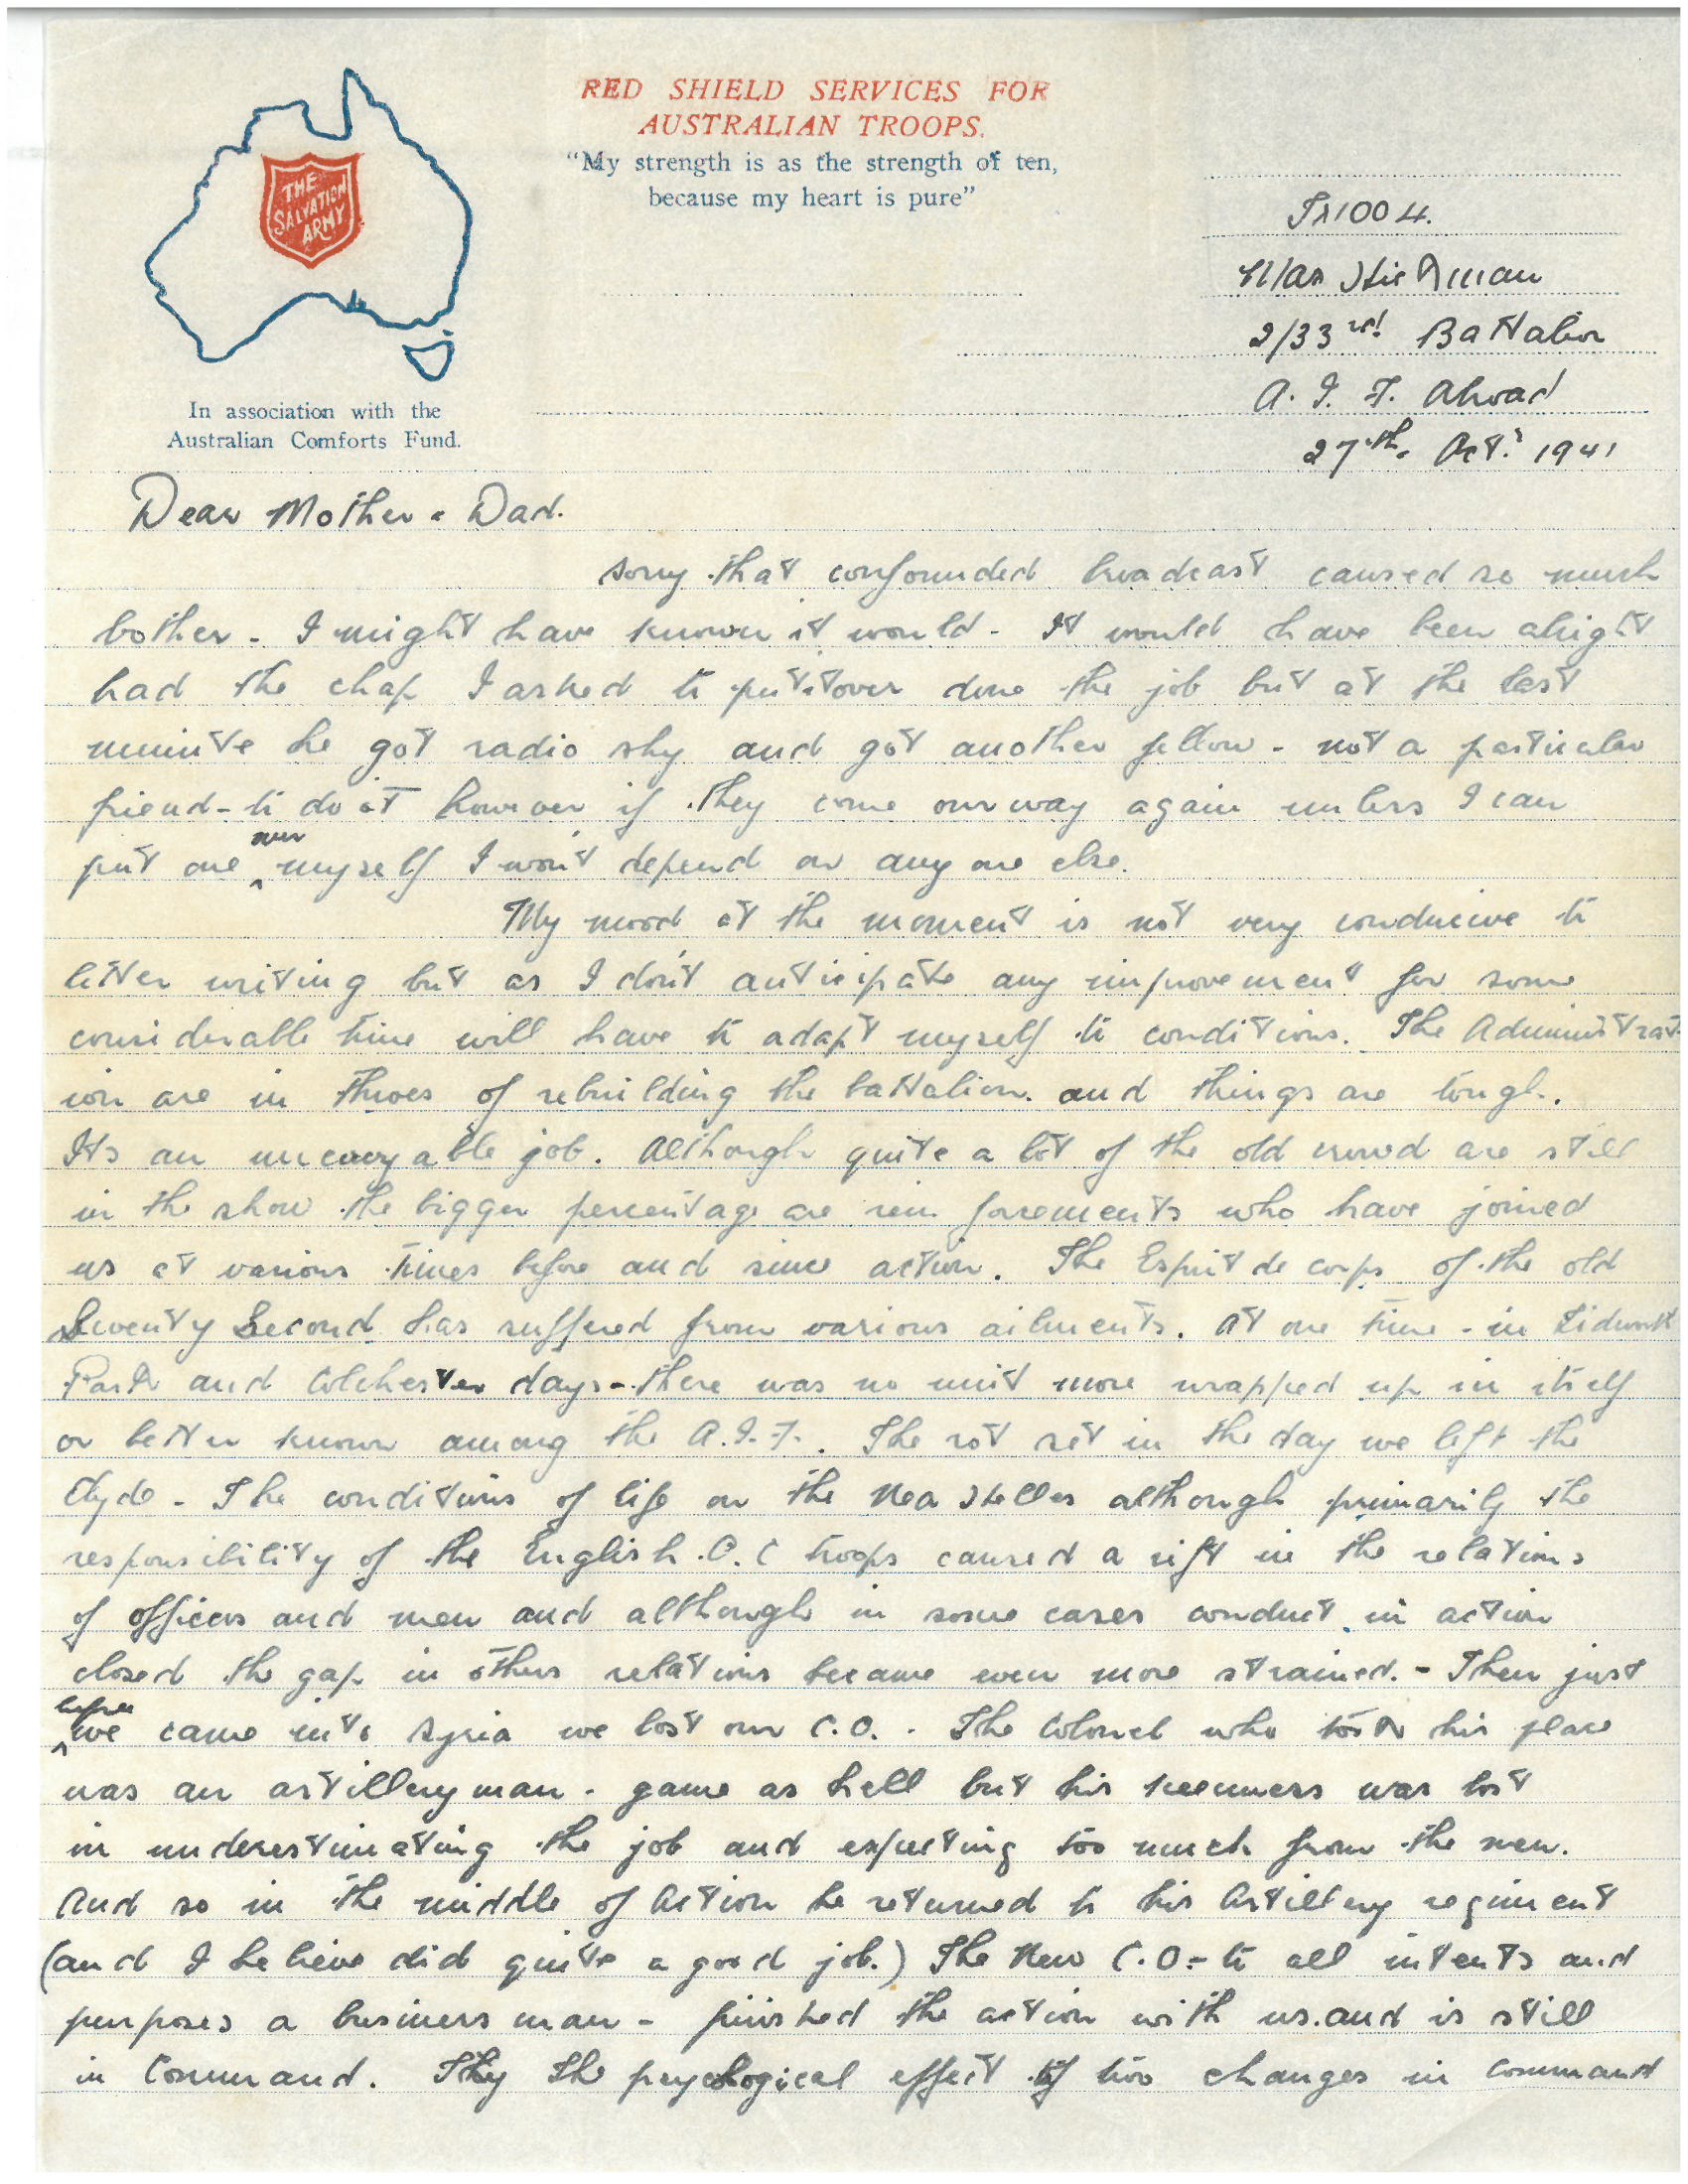 RED SHIELD SERVICES FOR
AUSTRALIAN TROOPS.
"My strength is as the strength of ten,
because my heart is pure"
THE
SALVATION
ARMY
In association with the
Australian Comforts Fund.
TX1004.
2/33rd Battalion
A. I. F. Abroad
27th. Oct. 1941
Dear Mother & Dad.
Sorry that confounded broadcast caused so much
bother - I might have known it would - It would have been alright
had the chap I asked to put it over done the job but at the last
minute he got radio shy and got another fellow - not a particular
friend - to do it however if they come our way again unless I can
put one over myself I won't depend on any one else.
My mood at the moment is not very conducive to
letter writing but as I don't anticipate any improvement for some
considerable time will have to adapt myself to conditions. The Administrat-
ion are in throes of rebuilding the battalion. and things are tough.
Its an unenvyable job. Although quite a lot of the old crowd are still
in the show the bigger percentage are reinforcements who have joined
us at various times before and since action. The Esprit de corps of the old
Seventy Second has suffered from various ailments. At one time - in Tidworth
Park and Colchester days - there was no unit more wrapped up in itself
or better known among the A.I.F. The rot set in the day we left the
Clyde - The conditions of life on the Nea Hellas although primarily the
responsibility of the English O.C troops caused a rift in the relations
of officers and men and although in some cases conduct in action
closed the gap in others relations became even more strained. - Then just
before we came into Syria we lost our C.O. - The Colonel who took his place
was an artillery man - game as hell but his keenness was lost
in underestimating the job and expecting too much from the men.
And so in the middle of action he returned to his Artillery regiment
(and I believe did quite a good job.) The New C.O - to all intents and
purposes a business man - finished the action with us. and is still
in Command. The psychological effect of two changes in command